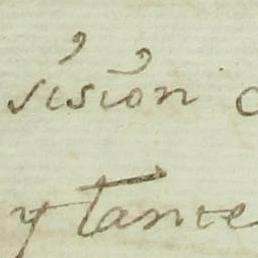 sision
y tance